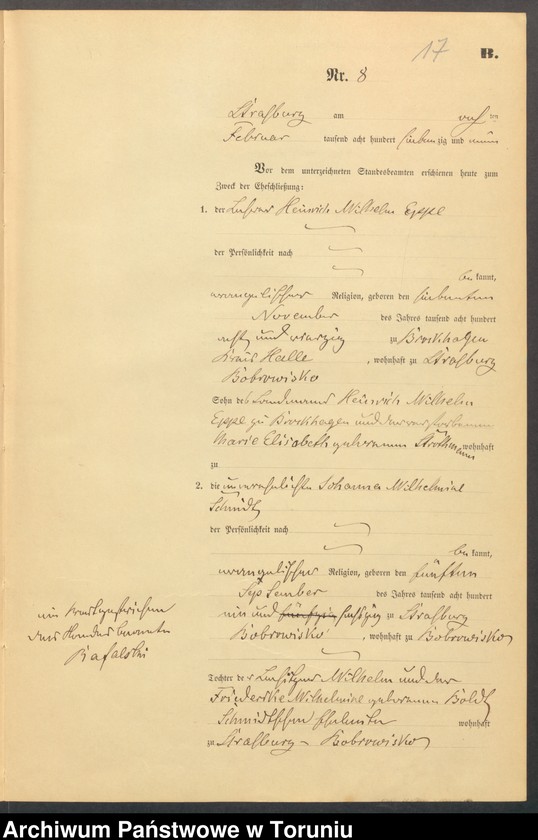 17
B.
Nr. 8
Straßburg am
Februar tausend acht hundert siebenzig und neun
Vor dem unterzeichneten Standesbeamten erschienen heute zum
Zweck der Eheschließung:
1. der Lehrer Heinrich Wilhelm Eppe
der Persönlichkeit nach
bekannt,
evangelischer Religion, geboren den siebenten
November des Jahres tausend acht hundert
acht und vierzig zu Brockhagen
Kreis Halle, wohnhaft zu Straßburg
Bobrowisko
Sohn des Landmanns Heinrich Wilhelm
Eppe zu Brockhagen und der verstorbenen
Marie Elisabeth geborenen Strothmann wohnhaft
zu
2. die unverehelichte Johanna Wilhelmine
Schmidt
der Persönlichkeit nach
bekannt,
evangelischer Religion, geboren den fünften
September des Jahres tausend acht hundert
ein und fünfzig sechszig zu Straßburg
Bobrowisko, wohnhaft zu Bobrowisko
ein Wort gestrichen
der Standesbeamte
Rafalski
Tochter der Besitzer Wilhelm und der
Friederike Wilhelmine geborenen Boldt
Schmidtschen Eheleute wohnhaft
zu Straßburg - Bobrowisko
Archiwum Państwowe w Toruniu